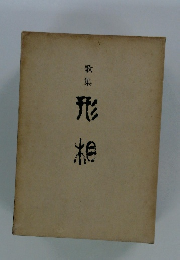 歌集
形相